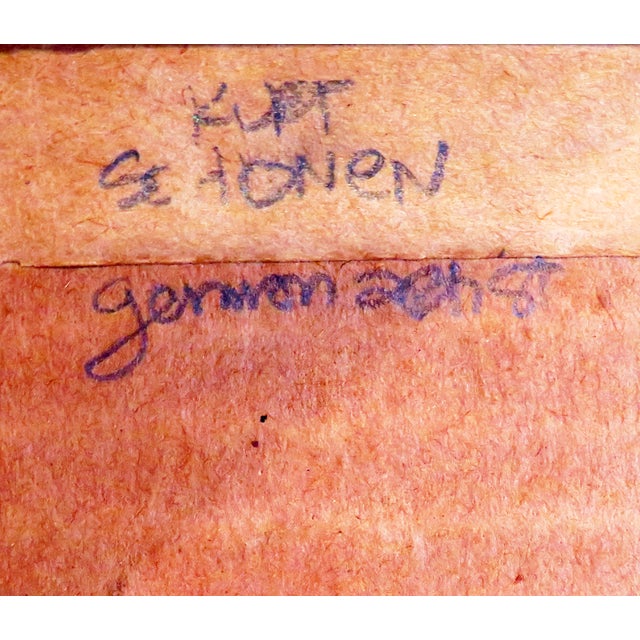 KURT
SCHONEN
german artist